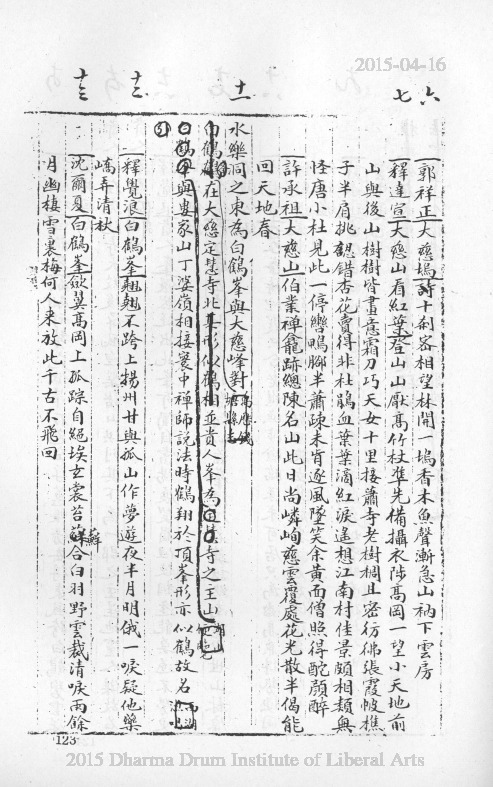 2015-04-16
六
七
十一
十二
十三
郭祥正大慈塢詩十刹密相望林開一塢香木魚聲漸急山衲下雲房
釋達宣大慈山看紅葉登山山厭高竹杖準先備攝衣陟高岡一望小天地前
山與後山樹樹皆畫意霜刀巧天女十里接蕭寺老樹稠且密彷彿張霞帔樵
子半肩挑錯杏花賣得非杜鵑血葉葉滴紅淚遙想江南村佳景頗相類無
怪唐小杜見此一停鸞鳴腳半蕭疎未肯逐風墜笑余黃面僧照得酡顏醉
許承祖大慈山伯業禪龕跡總陳名山此日尚嶙峋慈雲覆處花光散半偈能
回天地春
水樂洞之東為白鶴峯與大慈峰對
白鶴峯在大慈定慧寺北其形似鶴相並貴人峯為寺之王山
白鶴峯與婁家山丁婆嶺相接寰中禪師說法時鶴翔於頂峯形亦似鶴故名
釋覺浪白鶴峯翹翹不跨上揚州廿與孤山作夢遊夜半月明俄一唳疑他藥
嶠弄清秋
沈爾夏白鶴峯斂翼高岡上孤踪自絕埃玄裳苔蘚合白羽野雲裁清唳雨餘
月幽棲雪裏梅何人來放此千古不飛回
123
2015 Dharma Drum Institute of Liberal Arts